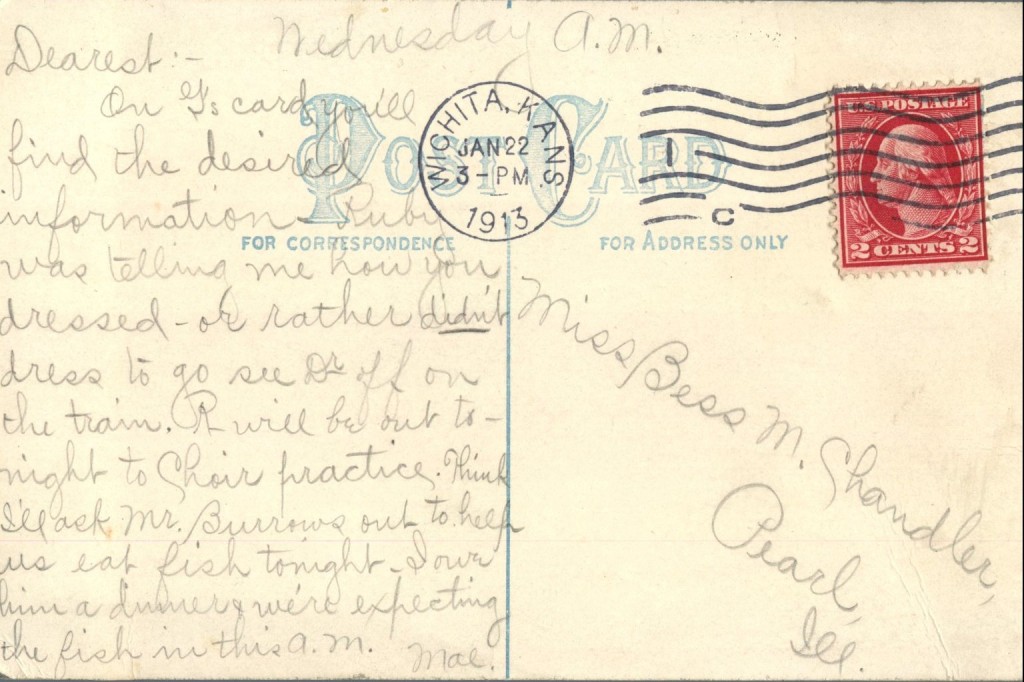 Wednesday A.M.
Dearest:-
On G's card you'll
find the desired
information - Ruby
was telling me how you
dressed - or rather didn't
dress to go see Dr off on
the train. R will be out to-
night to Choir practice. Think
I'll ask Mr. Burrows out to help
us eat fish tonight - I owe
him a dinner & we're expecting
the fish in this A.M.
Mae.
POST CARD
FOR CORRESPONDENCE
FOR ADDRESS ONLY
WICHITA, KANS.
JAN 22
3-PM
1913
1
C
U.S. POSTAGE
2 CENTS 2
Miss Bess M. Chandler,
Pearl,
Ill.